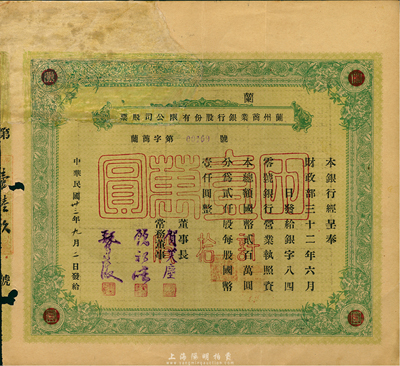 蘭
蘭州商業銀行股份有限公司股票
蘭萬字第 00169 號
本銀行經呈奉
財政部三十二年六月
日發給銀字八四
號銀行營業執照資
本總額國幣貳百萬圓
分為貳仟股每股國幣
壹仟圓整
計
壹萬圓
拾
董事長
常務董事
中華民國卅二年九月二日發給
號
上海陽明拍賣